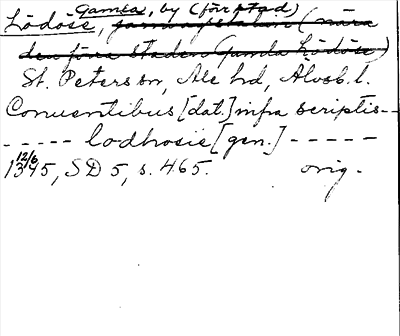 Gamla, by (förstad)
Lödöse, järnvägsstation (nära
den förra staden Gamla Lödöse)
St. Peters sn, Ale hd, Älvsb. l.
Conventibus [dat.] infra scriptis--
----- lodhosie [gen.] -----
12/6
1345, SD 5, s. 465. orig.